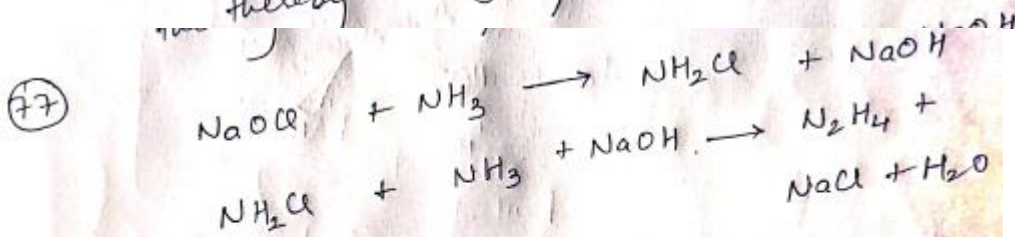 77 NaOCl + NH3 → NH2Cl + NaOH
NH2Cl + NH3 + NaOH → N2H4 +
NaCl + H2O